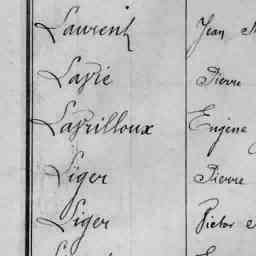 Laurent Jean
Lavie Pierre
Lavrilloux Eugène
Liger Pierre
Liger Victor